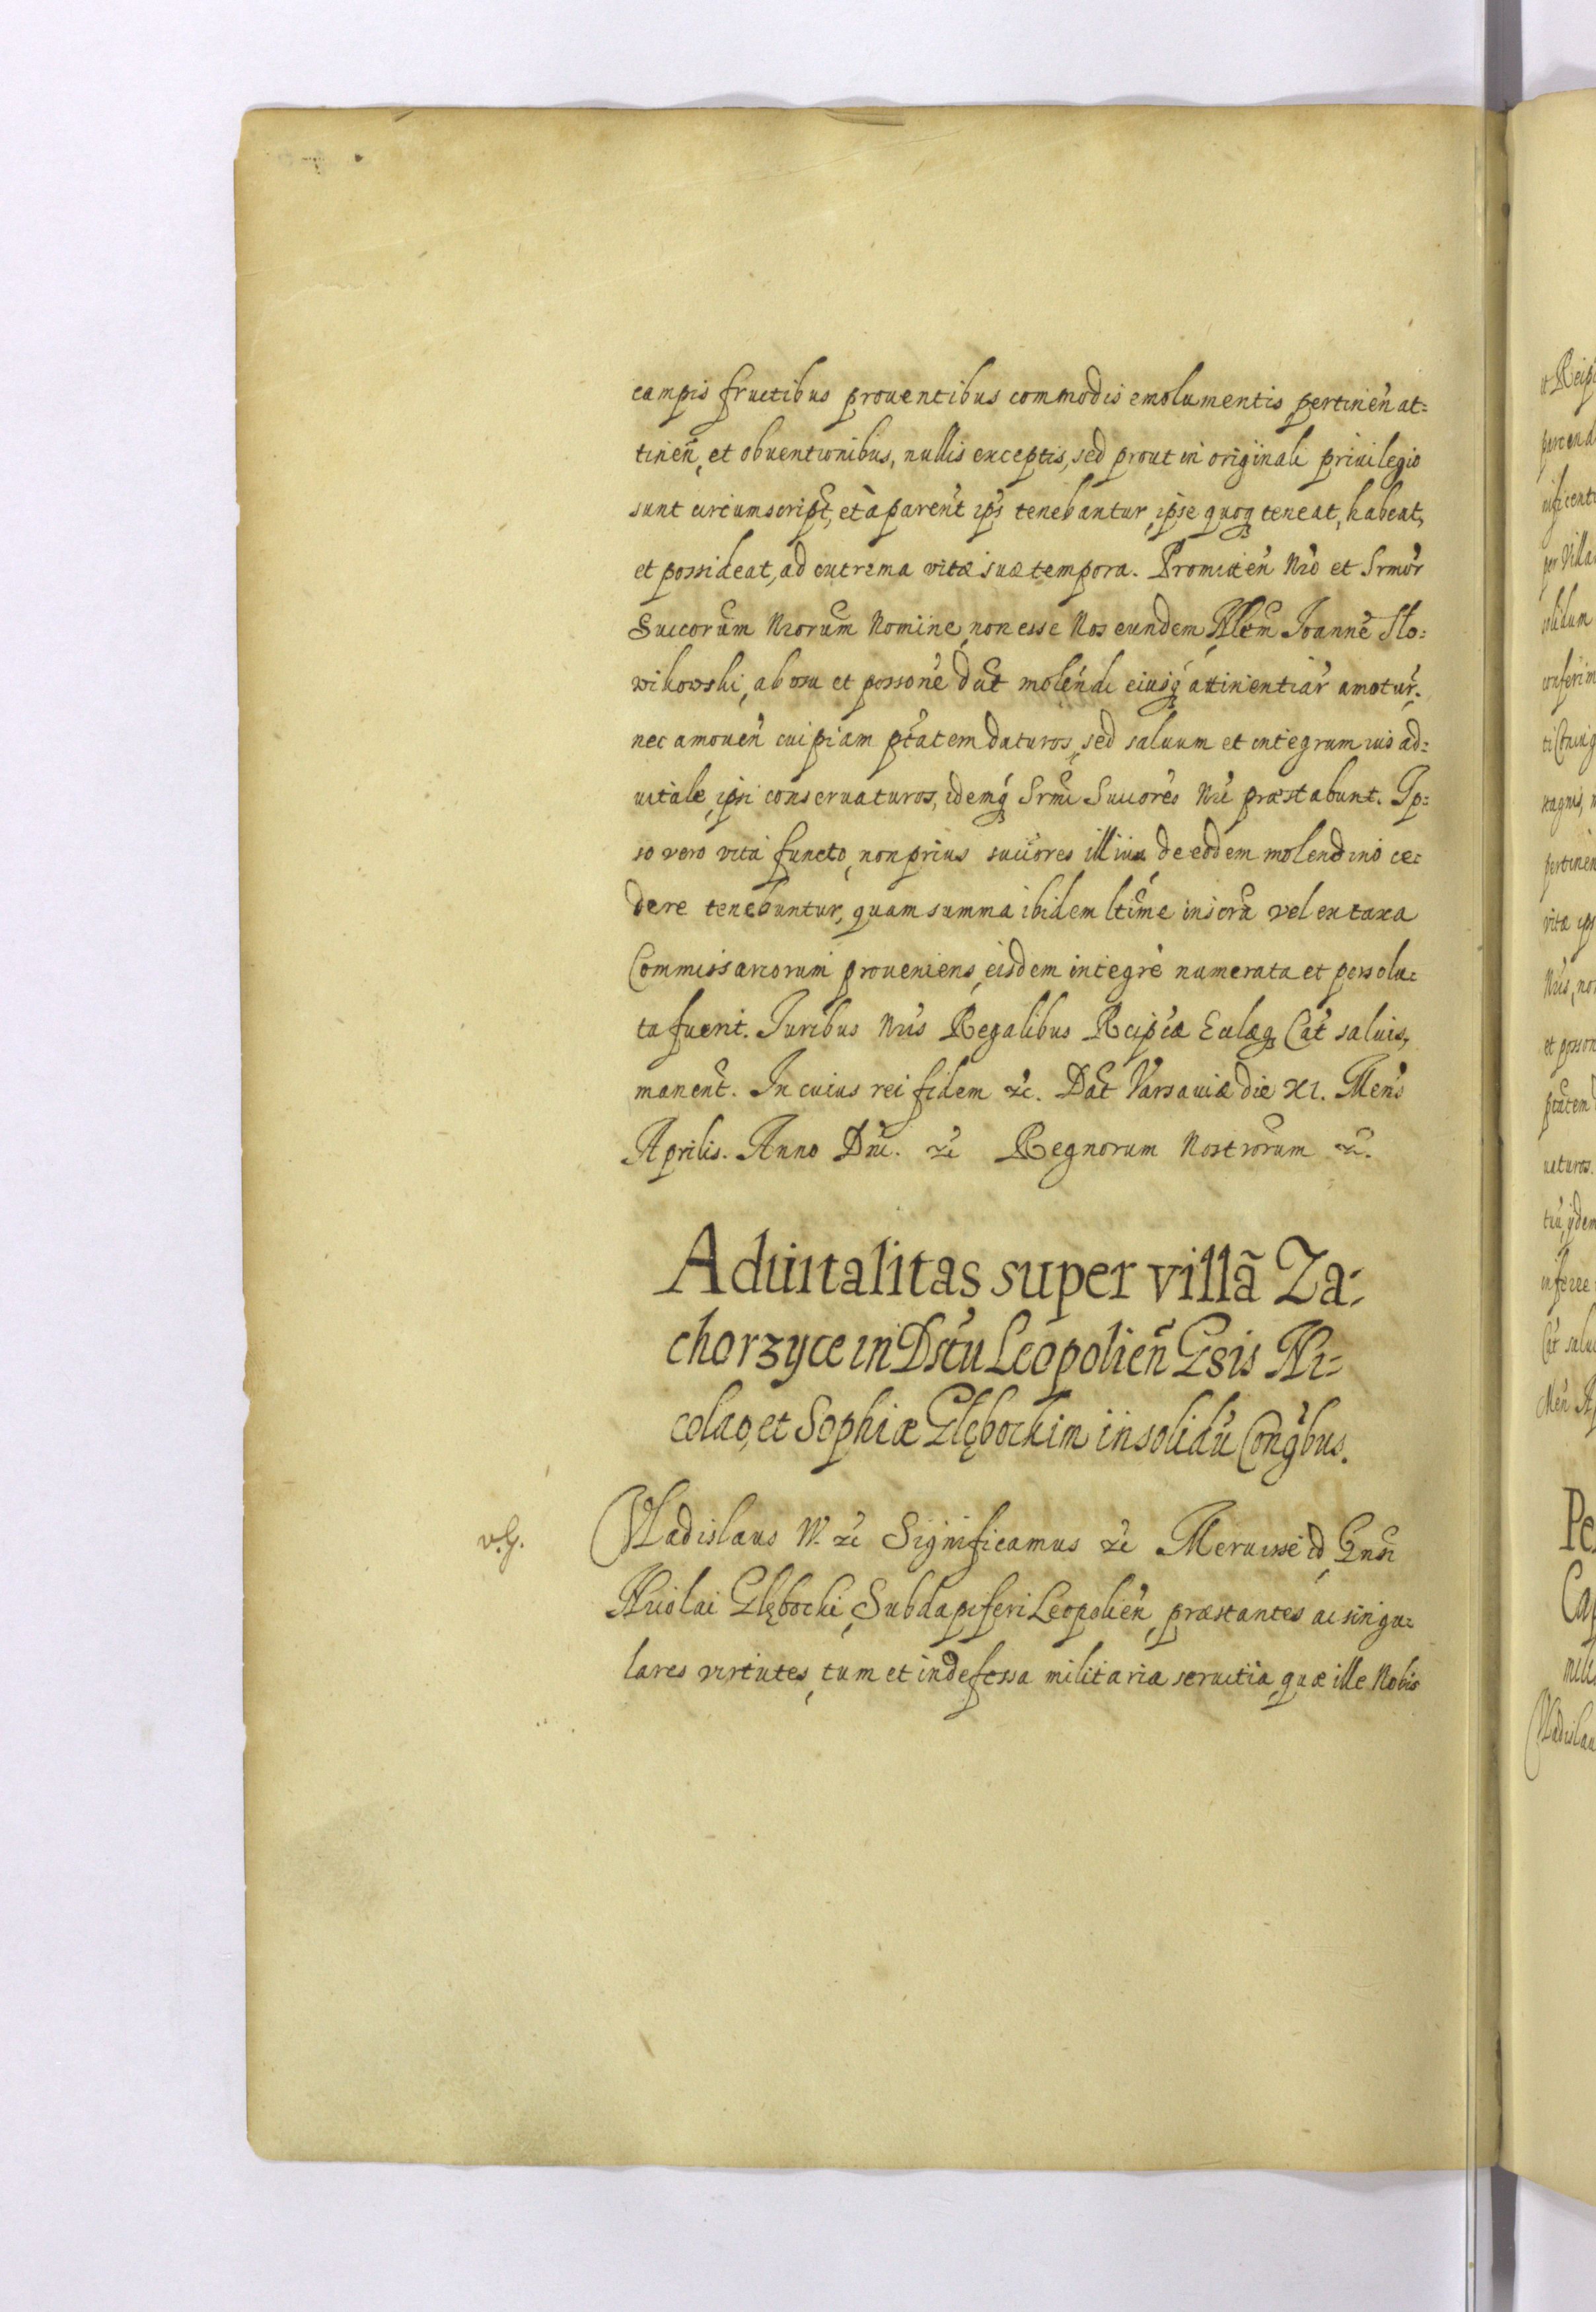 campis fructibus prouentibus commodis emolumentis pertinen̄ at=
tinen̄, et obuentionibus, nullis exceptis, sed prout in originali priuilegio
sunt circumscript, et à parent ips tenebantur, ipse quoq teneat, habeat,
et possideat, ad extrema vitæ suæ tempora. Promitten̄ Nr̃o et Srmor̃
Succorum Nrorum Nomine, non esse Nos eundem Nlem Joannē Sło=
wikowski, ab usu et possone dict molendi eiusq attinentiar̃ amotur.
nec amouen̄ cuipiam ptatem daturos, sed saluum et integrum ius ad=
uitale, ipsi conseruaturos, idemq Srmi Succores Nri præstabunt. Ip=
so vero vita functo, non prius succores illius de eodem molendino ce=
dere tenebuntur, quam summa ibidem ltime inscra vel ex taxa
Commissariorum proueniens, eisdem integrè numerata et persolu=
ta fuerit. Juribus Nris Regalibus Reipcæ Eclæq Cat saluis,
manent. In cuius rei fidem &c. Dat Varsauiæ die XI. Mens
Aprilis. Anno Dni. &c Regnorum Nostrorum &c.
Aduitalitas super villã Za=
chorzyce in Dstu Leopolien̄ Gsis Ni=
colao, et Sophiæ Głębockim in solidũ Congbus.
v.g.
Vladislaus IV. &c Significamus &c Meruisse id Gnsi
Nicolai Głębocki, Subdapiferi Leopolien̄, præstantes ac singu=
lares virtutes, tum et indefessa militaria seruitia, quæ ille Nobis